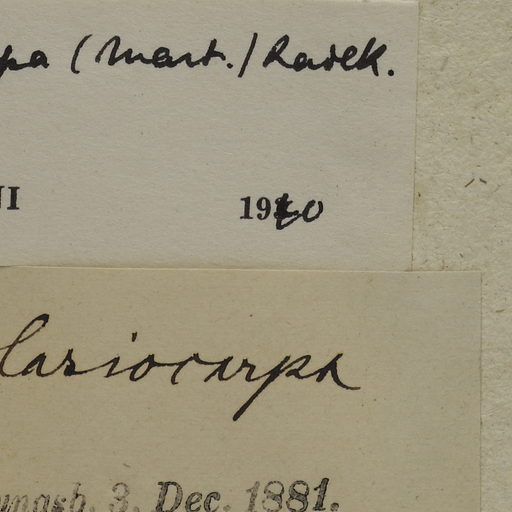 pa (Mart.) Radlk.
NI 1940
lasiocarpa
ynash. 3. Dec. 1881.